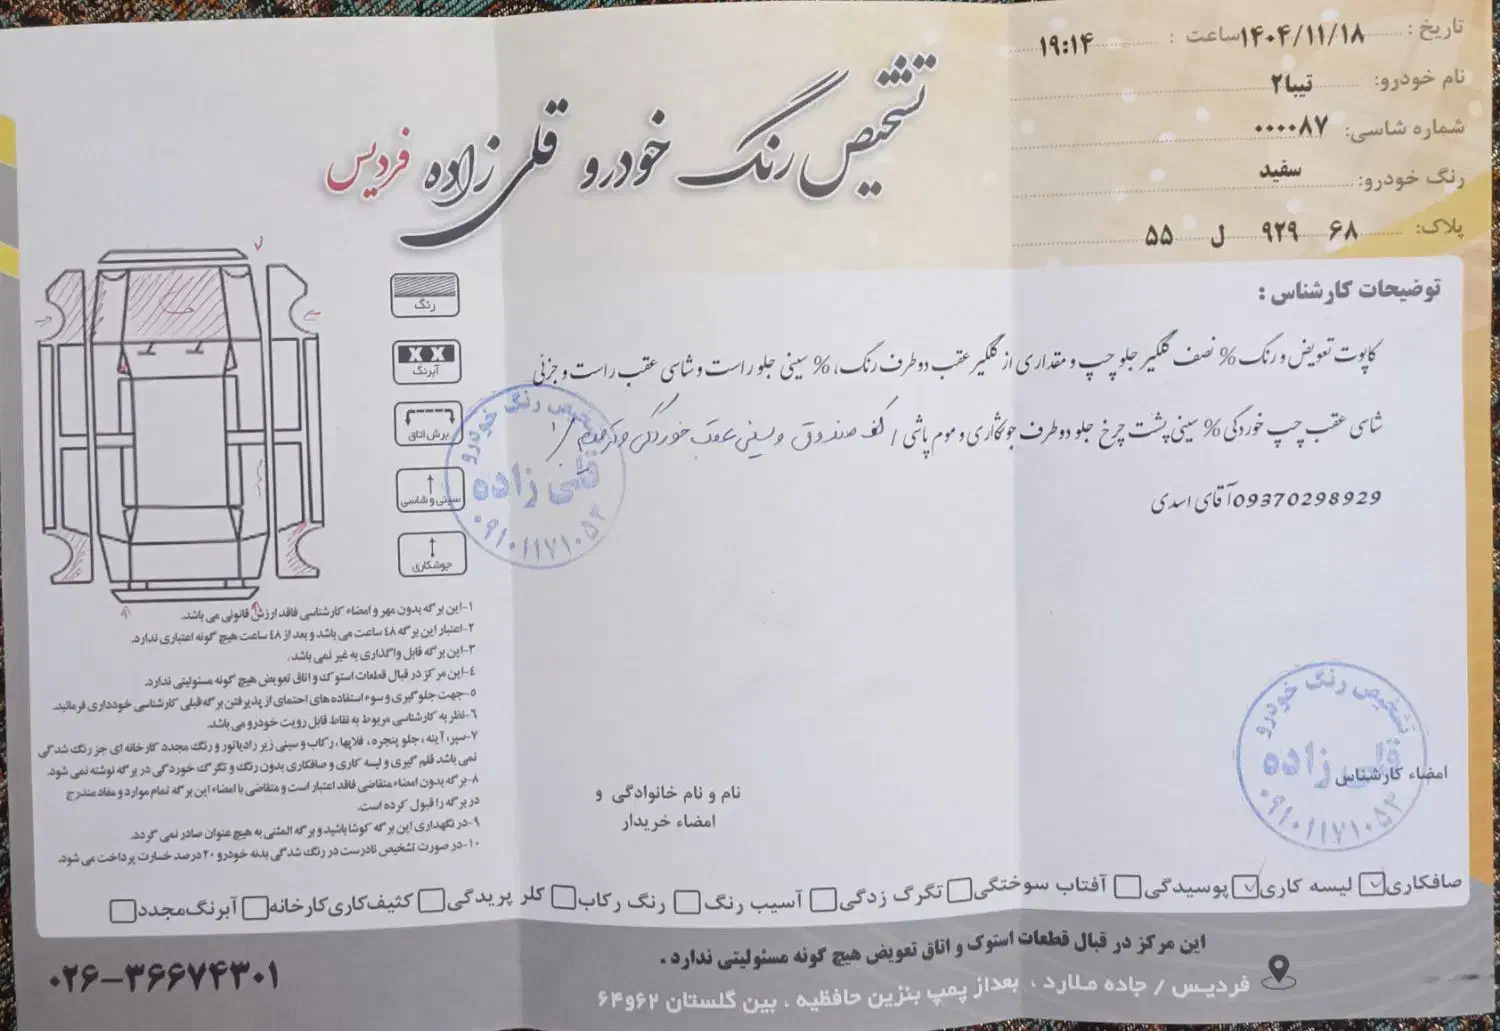 تاریخ : ۱۴۰۴/۱۱/۱۸ ساعت : ۱۹:۱۴
نام خودرو: تیبا۲
شماره شاسی: ۰۰۰۰۸۷
رنگ خودرو: سفید
پلاک: ۶۸ ۹۲۹ ل ۵۵
تشخیص رنگ خودرو قلی زاده فردیس
توضیحات کارشناس :
کاپوت تعویض و رنگ % نصف گلگیر جلو چپ و مقداری از گلگیر عقب دو طرف رنگ، % سینی جلو راست و شاسی عقب راست و جزئی
شاسی عقب چپ خوردگی % سینی پشت چرخ جلو دو طرف جوشکاری و موم پاشی / کف صندوق و سینی عقب خوردگی و
09370298929آقای اسدی
رنگ
X X
آبرنگ
برش اتاق
سینی و شاسی
جوشکاری
تشخیص رنگ خودرو
قلی زاده
۰۹۱۰۱۱۷۱۰۵۳
۱-این برگه بدون مهر و امضاء کارشناسی فاقد ارزش قانونی می باشد.
۲-اعتبار این برگه ٤٨ ساعت می باشد و بعد از ٤٨ ساعت هیچ گونه اعتباری ندارد.
۳-این برگه قابل واگذاری به غیر نمی باشد.
٤-این مرکز در قبال قطعات استوک و اتاق تعویض هیچ گونه مسئولیتی ندارد.
٥-جهت جلوگیری و سوء استفاده های احتمای از پذیرفتن برگه قبلی کارشناسی خودداری فرمائید.
٦-نظر به کارشناسی مربوط به نقاط قابل رویت خودرو می باشد.
۷-سپر، آینه ، جلو پنجره ، فلاپها، رکاب و سینی زیر رادیاتور و رنگ مجدد کارخانه ای جز رنگ شدگی
نمی باشد قلم گیری و لیسه کاری و صافکاری بدون رنگ و تگرگ خوردگی در برگه نوشته نمی شود.
۸-برگه بدون امضاء متقاضی فاقد اعتبار است و متقاضی با امضاء این برگه تمام موارد و مفاد مندرج
در برگه را قبول کرده است.
۹-در نگهداری این برگه کوشا باشید و برگه المثنی به هیچ عنوان صادر نمی گردد.
۱۰-در صورت تشخیص نادرست در رنگ شدگی بدنه خودرو ۲۰ درصد خسارت پرداخت می شود.
نام و نام خانوادگی و
امضاء خریدار
تشخیص رنگ خودرو
قلی زاده
۰۹۱۰۱۱۷۱۰۵۳
امضاء کارشناس
صافکاری لیسه کاری پوسیدگی آفتاب سوختگی تگرگ زدگی آسیب رنگ رنگ رکاب کلر پریدگی کثیف کاری کارخانه آبرنگ مجدد
این مرکز در قبال قطعات استوک و اتاق تعویض هیچ گونه مسئولیتی ندارد .
فردیس / جاده ملارد ، بعداز پمپ بنزین حافظیه ، بین گلستان ۶۲و۶۴
۰۲۶-۳۶۶۷۴۳۰۱